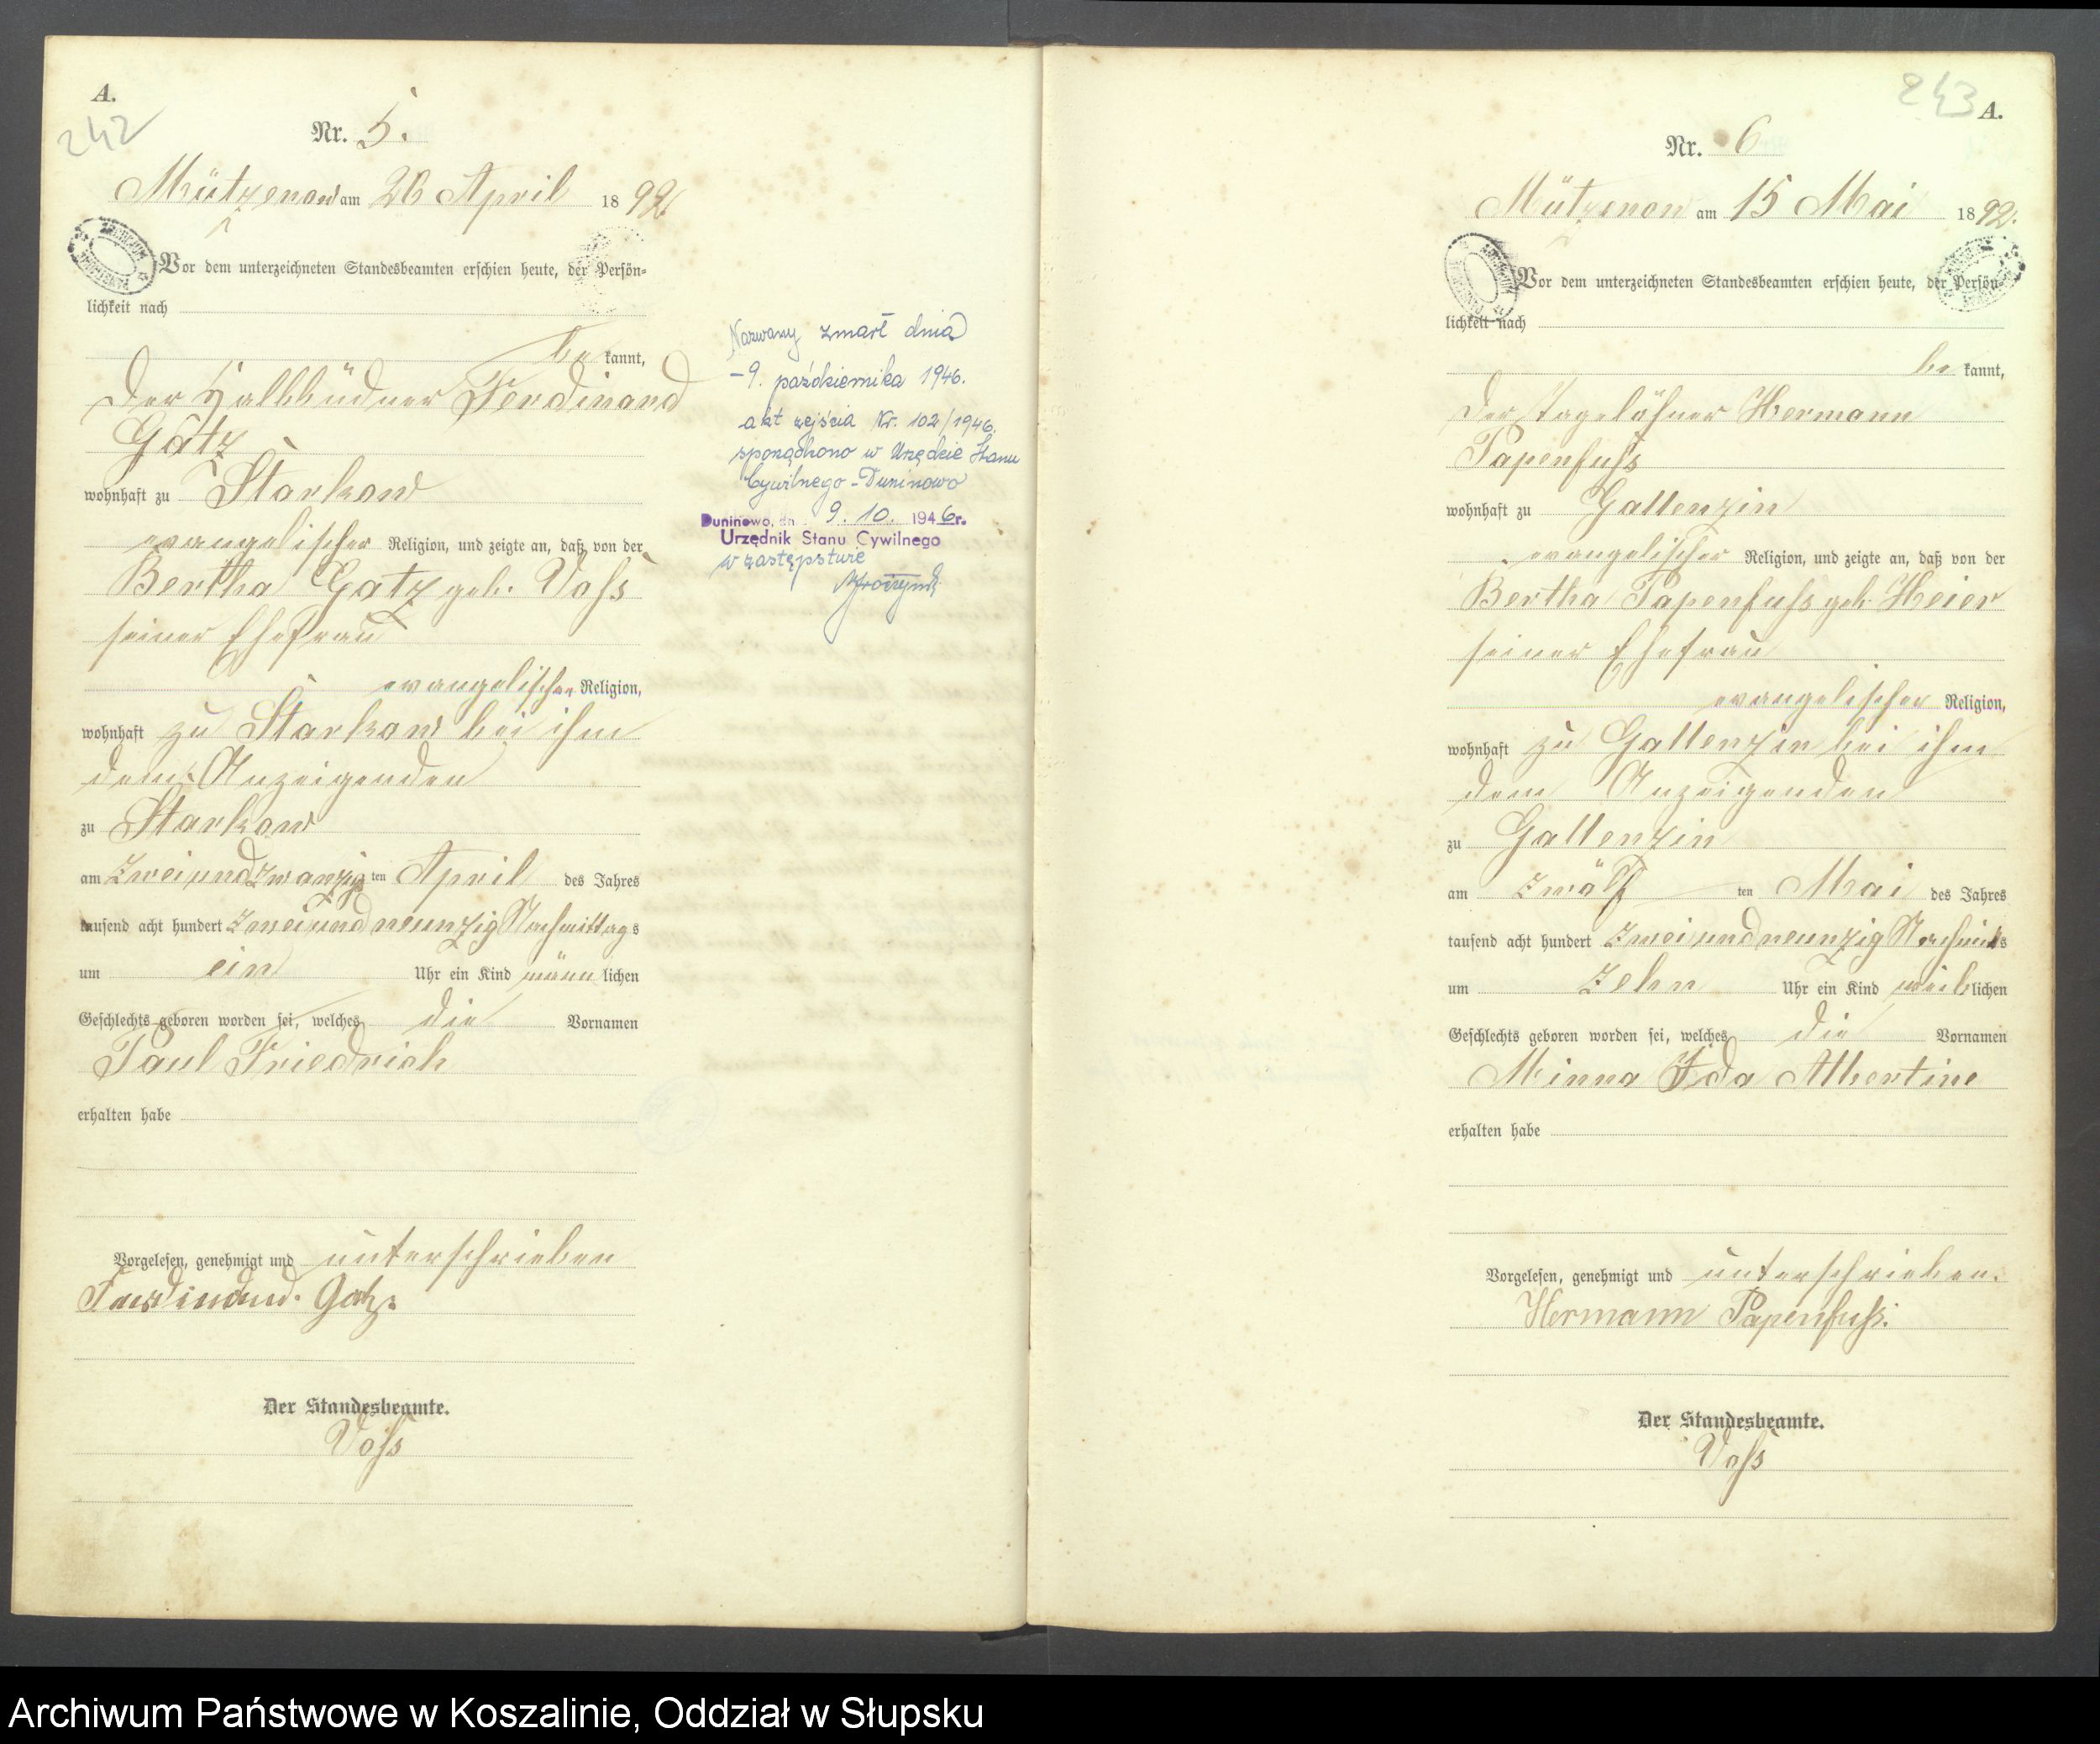 A.
242
Nr. 5.
Mützenow am 26 April 1892
Vor dem unterzeichneten Standesbeamten erschien heute, der Persön-
lichkeit nach
be kannt,
der Halbbüdner Ferdinand
Gatz
wohnhaft zu Starkow
evangelischer Religion, und zeigte an, daß von der
Bertha Gatz geb. Voss
seiner Ehefrau
evangelischer Religion,
wohnhaft zu Starkow bei ihm
dem Anzeigenden
zu Starkow
am zweiundzwanzig ten April des Jahres
tausend acht hundert zweiundneunzig Nachmittags
um ein Uhr ein Kind männ lichen
Geschlechts geboren worden sei, welches die Vornamen
Paul Friedrich
erhalten habe
Vorgelesen, genehmigt und unterschrieben
Ferdinand Gatz.
Der Standesbeamte.
Voss
Nazwany zmarł dnia
- 9. października 1946.
akt zejścia Nr. 102/1946.
sporządzono w Urzędzie Stanu
Cywilnego - Duninowo
Duninowo, dn 9. 10. 1946 r.
Urzędnik Stanu Cywilnego
w zastępstwie
243
A.
Nr. 6
Mützenow am 15 Mai 1892.
Vor dem unterzeichneten Standesbeamten erschien heute, der Persön-
lichkeit nach
be kannt,
der Tagelöhner Hermann
Papenfuss
wohnhaft zu Gallenzin
evangelischer Religion, und zeigte an, daß von der
Bertha Papenfuss geb. Heier
seiner Ehefrau
evangelischer Religion,
wohnhaft zu Gallenzin bei ihm
dem Anzeigenden
zu Gallenzin
am zwölf ten Mai des Jahres
tausend acht hundert zweiundneunzig Nachmitts
um zehn Uhr ein Kind weib lichen
Geschlechts geboren worden sei, welches die Vornamen
Minna Ida Albertine
erhalten habe
Vorgelesen, genehmigt und unterschrieben.
Hermann Papenfuß.
Der Standesbeamte.
Voss
Archiwum Państwowe w Koszalinie, Oddział w Słupsku